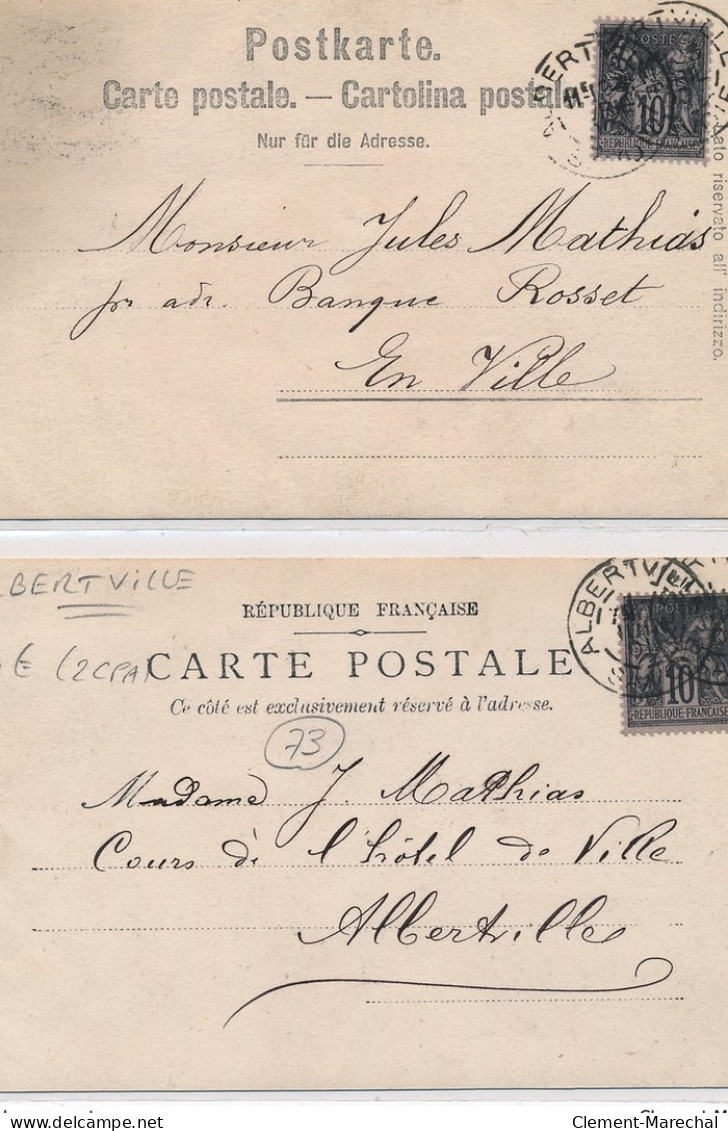 Postkarte.
Carte postale. — Cartolina postale
Nur für die Adresse.
ALBERTVILLE
POSTE
10
RÉPUBLIQUE FRANÇAISE
riservato all' indirizzo.
Monsieur Jules Mathias
pr adr. Banque Rosset
En Ville
LBERTVILLE
€ (2CPA)
RÉPUBLIQUE FRANÇAISE
CARTE POSTALE
Ce côté est exclusivement réservé à l'adresse.
ALBERTVILLE
10
RÉPUBLIQUE FRANÇAISE
73
Madame J. Mathias
Cours de l'hôtel de Ville
Albertville
Clement-Marechal